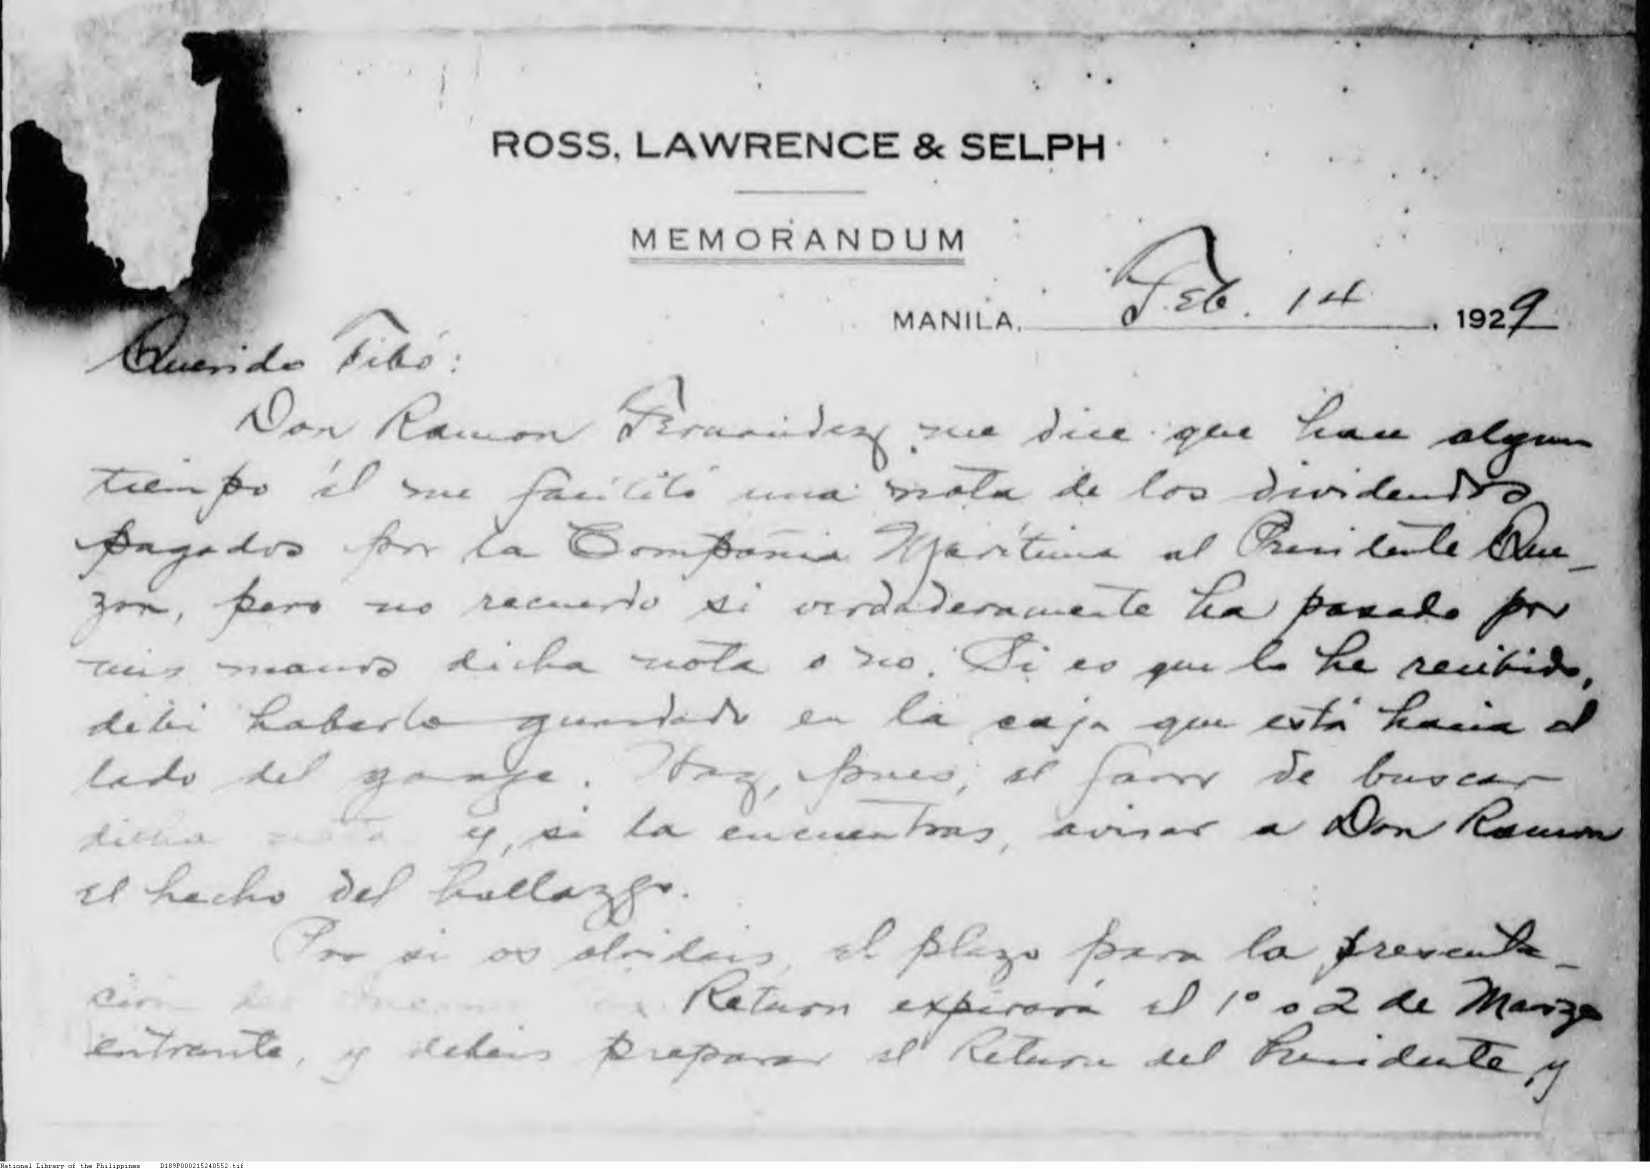 ROSS, LAWRENCE & SELPH
MEMORANDUM
MANILA, Feb. 14, 1929
Querido Fibó:
Don Ramon Fernandez me dice que hace algun
tiempo él me facilitó una nota de los dividendos
pagados por la Compañia Marítima al Presidente Que-
zon, pero no recuerdo si verdaderamente ha pasado por
mis manos dicha nota o no. Si es que la he recibido,
debí haberla guardado en la caja que está hacia el
lado del garage. Haz, pues, el favor de buscar
dicha nota y, si la encuentras, avisar a Don Ramon
el hecho del hallazgo.
Por si os olvidais, el plazo para la presenta-
ción del Income Tax Return expirará el 1º o 2 de Marzo
entrante, y debeis preparar el Return del Presidente, y
National Library of the Philippines D189P000215240552.tif